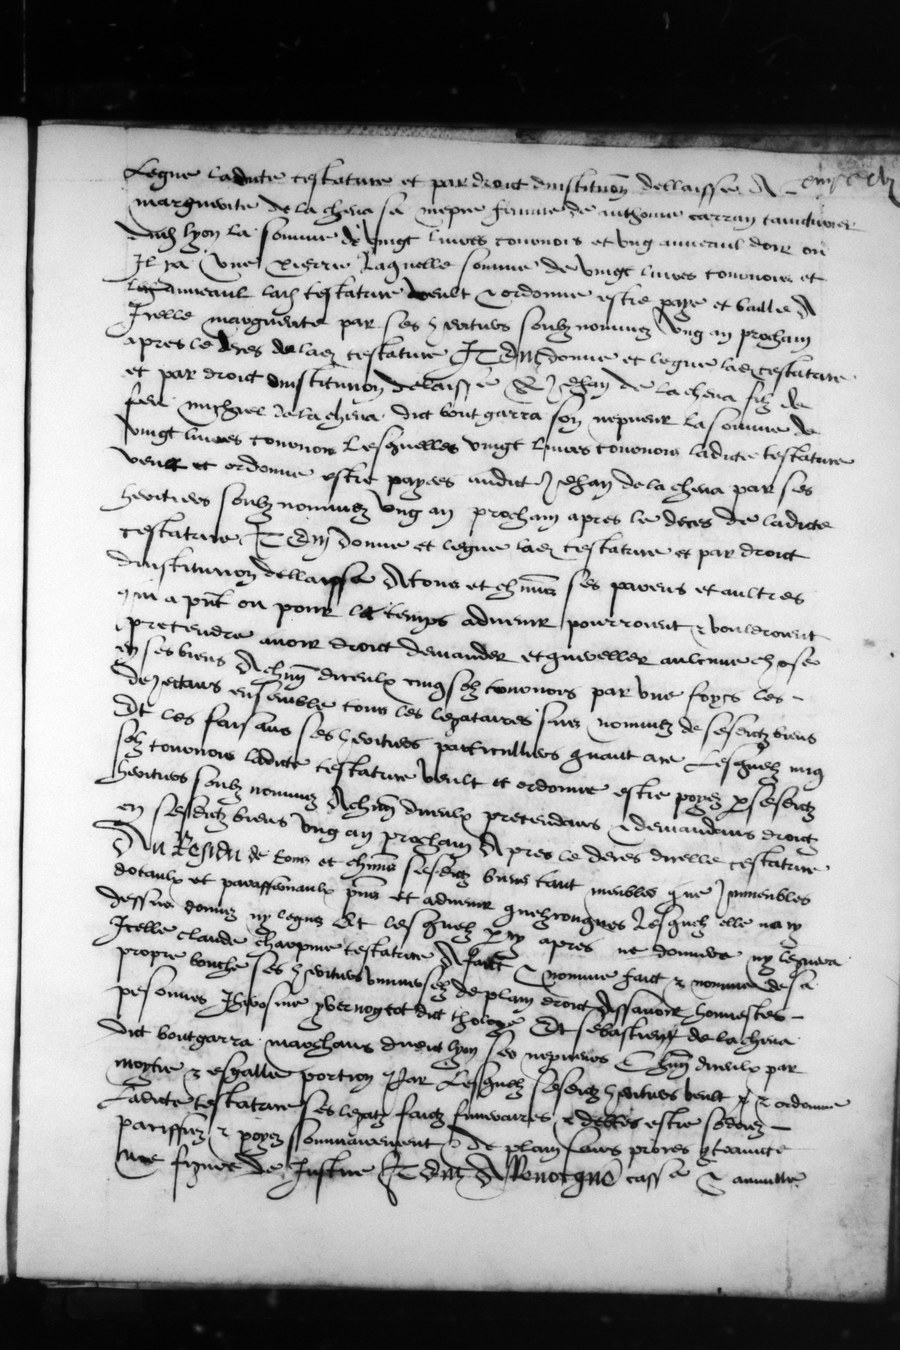 Legue ladicte testature et par droict dinstitution dellaisse A
marguerite de la cheva sa niepce femme de anthoine carran
dudt lyon la somme de vingt livres tournois et ung anneaul dor ou
Il ya une pierre laquelle somme de vingt livres tournois et
anneaul ladt testature veult & ordonne estre paye et baille A
Icelle marguerite par ses heritiers soubz nommez ung an prochain
apres le deces de ladt testature Item donne et legue ladt testature
et par droict dinstitution delaisse A Jehan de la cheva filz de
feu michiel de la cheva dict bout garra son nepveur la somme de
vingt livres tournois Lesquelles vingt livres tournois ladicte testature
veult et ordonne estre payees audict Jehan de la cheva par ses
heritiers soubz nommez ung an prochain apres le deces de ladicte
testature Item donne et legue ladt testature et par droict
dinstitution dellaisse A tous et chnuns ses parens et aultres
qui a pnt ou pour le temps advenir pourroient & vouldroient
pretendre avoir droict demander et quereller aulcune chose
en ses biens A chnun diceulx cinq solz tournois par une foys les
dejectans ensemble tous les legataires sus nommez de sesdictz biens
Et les faisans ses heritiers particulliers quant ace Lesquelz cinq
solz tournois ladicte testature veult et ordonne estre poyez p sesdictz
heritiers soubz nommez A chnun diceulx pretendans & demandans droict
en sesdictz biens ung an prochain Apres le deces dicelle testature
Au Residu de tous et chnuns sesdictz biens tant meubles que Immeubles
dotaulx et paraffernaulx pns et advenir quelzconques Lesquelz elle na cy
dessus donnez ny leguez Et lesquelz p cy apres ne donnera ny leguera
Icelle claude testature A faict & nomme faict & nomme de sa
propre bouche ses heritiers universelz de plain droict Assavoir honnestes
personnes dict Et sebastien de la cheva
dict boutgarra marchans dudict lyon ses nepveurs Chnun diceulx par
moytie & esgalle portion Par Lesquelz sesdictz heritiers veult & ordonne
Ladicte testature ses legatz faictz funeraires & debtes estre
& poyez sommairement & de plain sans proces
ne figure de Justice Item A Revocque casse & annulle